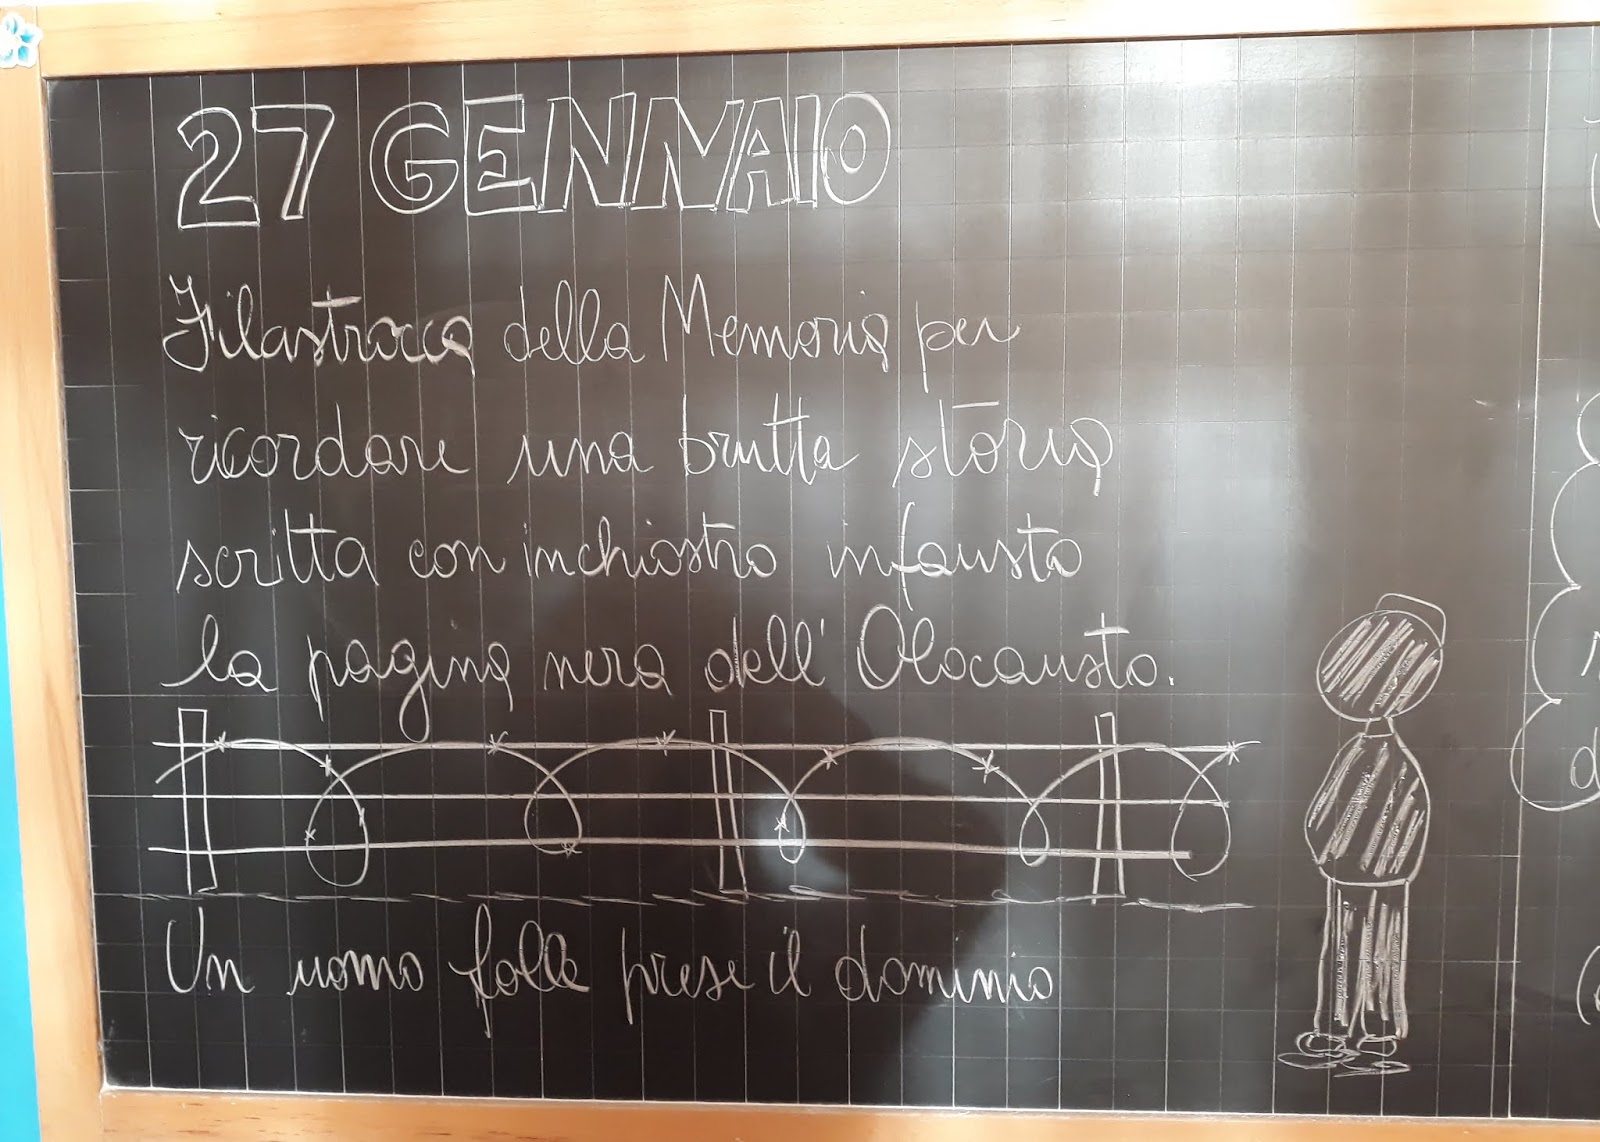 27 GENNAIO
Filastrocca della Memoria per
ricordare una brutta storia
scritta con inchiostro infausto
la pagina nera dell'Olocausto.
Un uomo folle prese il dominio